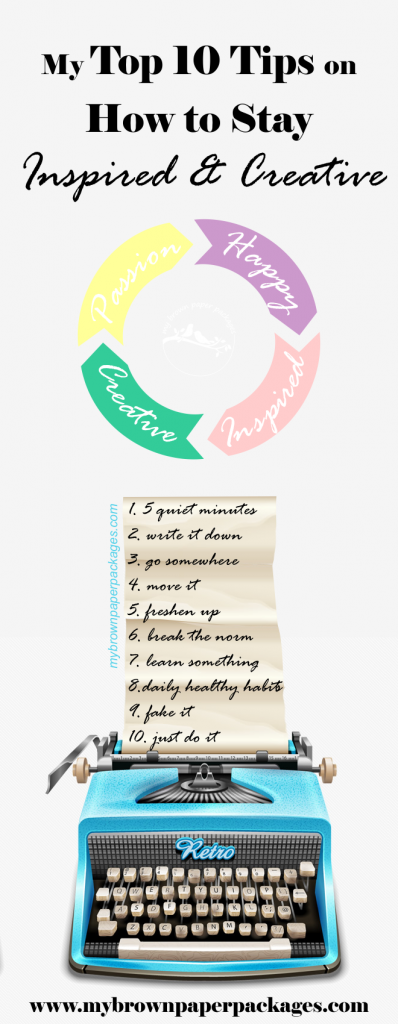 My Top 10 Tips on
How to Stay
Inspired & Creative
Passion
Happy
Creative
Inspired
mybrownpaperpackages.com
1. 5 quiet minutes
2. write it down
3. go somewhere
4. move it
5. freshen up
6. break the norm
7. learn something
8.daily healthy habits
9. fake it
10. just do it
Retro
www.mybrownpaperpackages.com